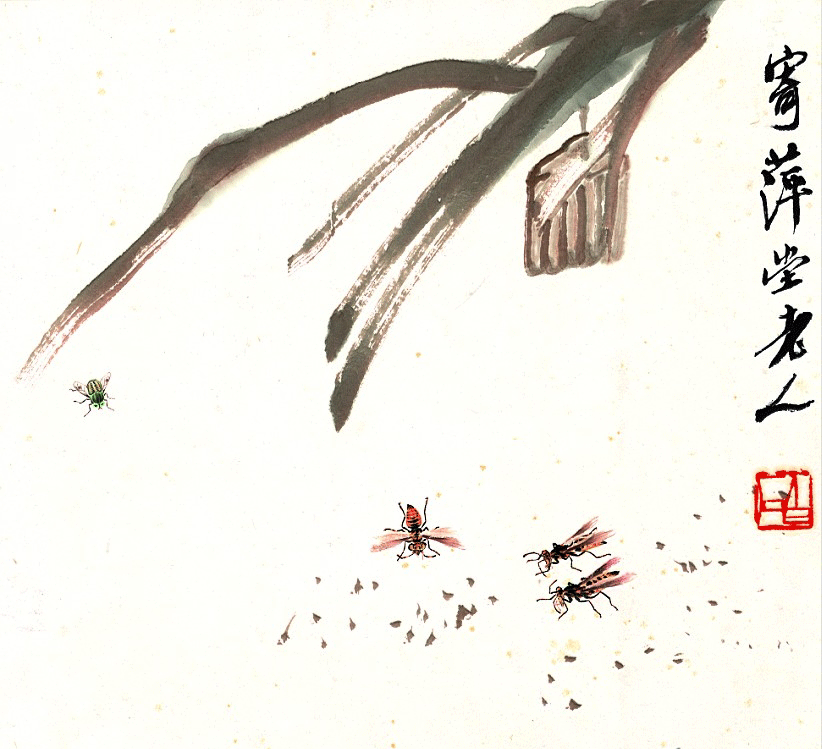 寄萍堂老人